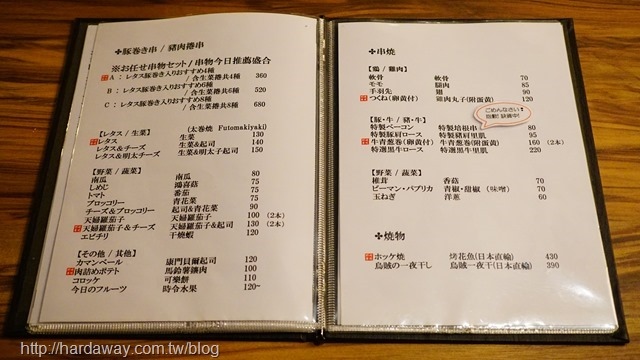 ✤豚巻き串 / 豬肉捲串
※お任せ串物セット/串物今日推薦盛合
A：レタス豚巻き入りおすすめ4種
/含生菜捲共4種 360
B：レタス豚巻き入りおすすめ6種
/含生菜捲共6種 520
C：レタス豚巻き入りおすすめ8種
/含生菜捲共8種 680
(太巻燒 Futomakiyaki)
【レタス / 生菜】
レタス 生菜 130
レタス&チーズ 生菜&起司 140
レタス&明太チーズ 生菜&明太子起司 150
【野菜 / 蔬菜】
南瓜 南瓜 80
しめじ 鴻喜菇 75
トマト 番茄 75
ブロッコリー 青花菜 75
チーズ&ブロッコリー 起司&青花菜 90
天婦羅茄子 天婦羅茄子 100 (2本)
天婦羅茄子&チーズ 天婦羅茄子&起司 130 (2本)
エビチリ 干燒蝦 120
【その他 / 其他】
カマンベール 康門貝爾起司 120
肉詰めポテト 馬鈴薯鑲肉 100
コロッケ 可樂餅 110
今日のフルーツ 時令水果 120~
✤串燒
【鶏 / 雞肉】
軟骨 軟骨 70
モモ 腿肉 85
手羽先 翅 90
つくね(卵黄付) 雞肉丸子(附蛋黄) 120
ごめんなさい!
抱歉! 缺貨中!
【豚・牛 / 豬・牛】
特製ベーコン 特製培根串 80
特製豚肩ロース 特製豬肩里肌 95
牛青葱巻(卵黄付) 牛青葱捲(附蛋黄) 160 (2本)
特選黒牛ロース 特選黒牛里肌 220
【野菜 / 蔬菜】
椎茸 香菇 70
ピーマン・パプリカ 青椒・甜椒 (味噌) 70
玉ねぎ 洋蔥 60
✤焼物
ホッケ焼 烤花魚(日本直輸) 430
烏賊の一夜干し 烏賊一夜干(日本直輸) 390
http://hardaway.com.tw/blog